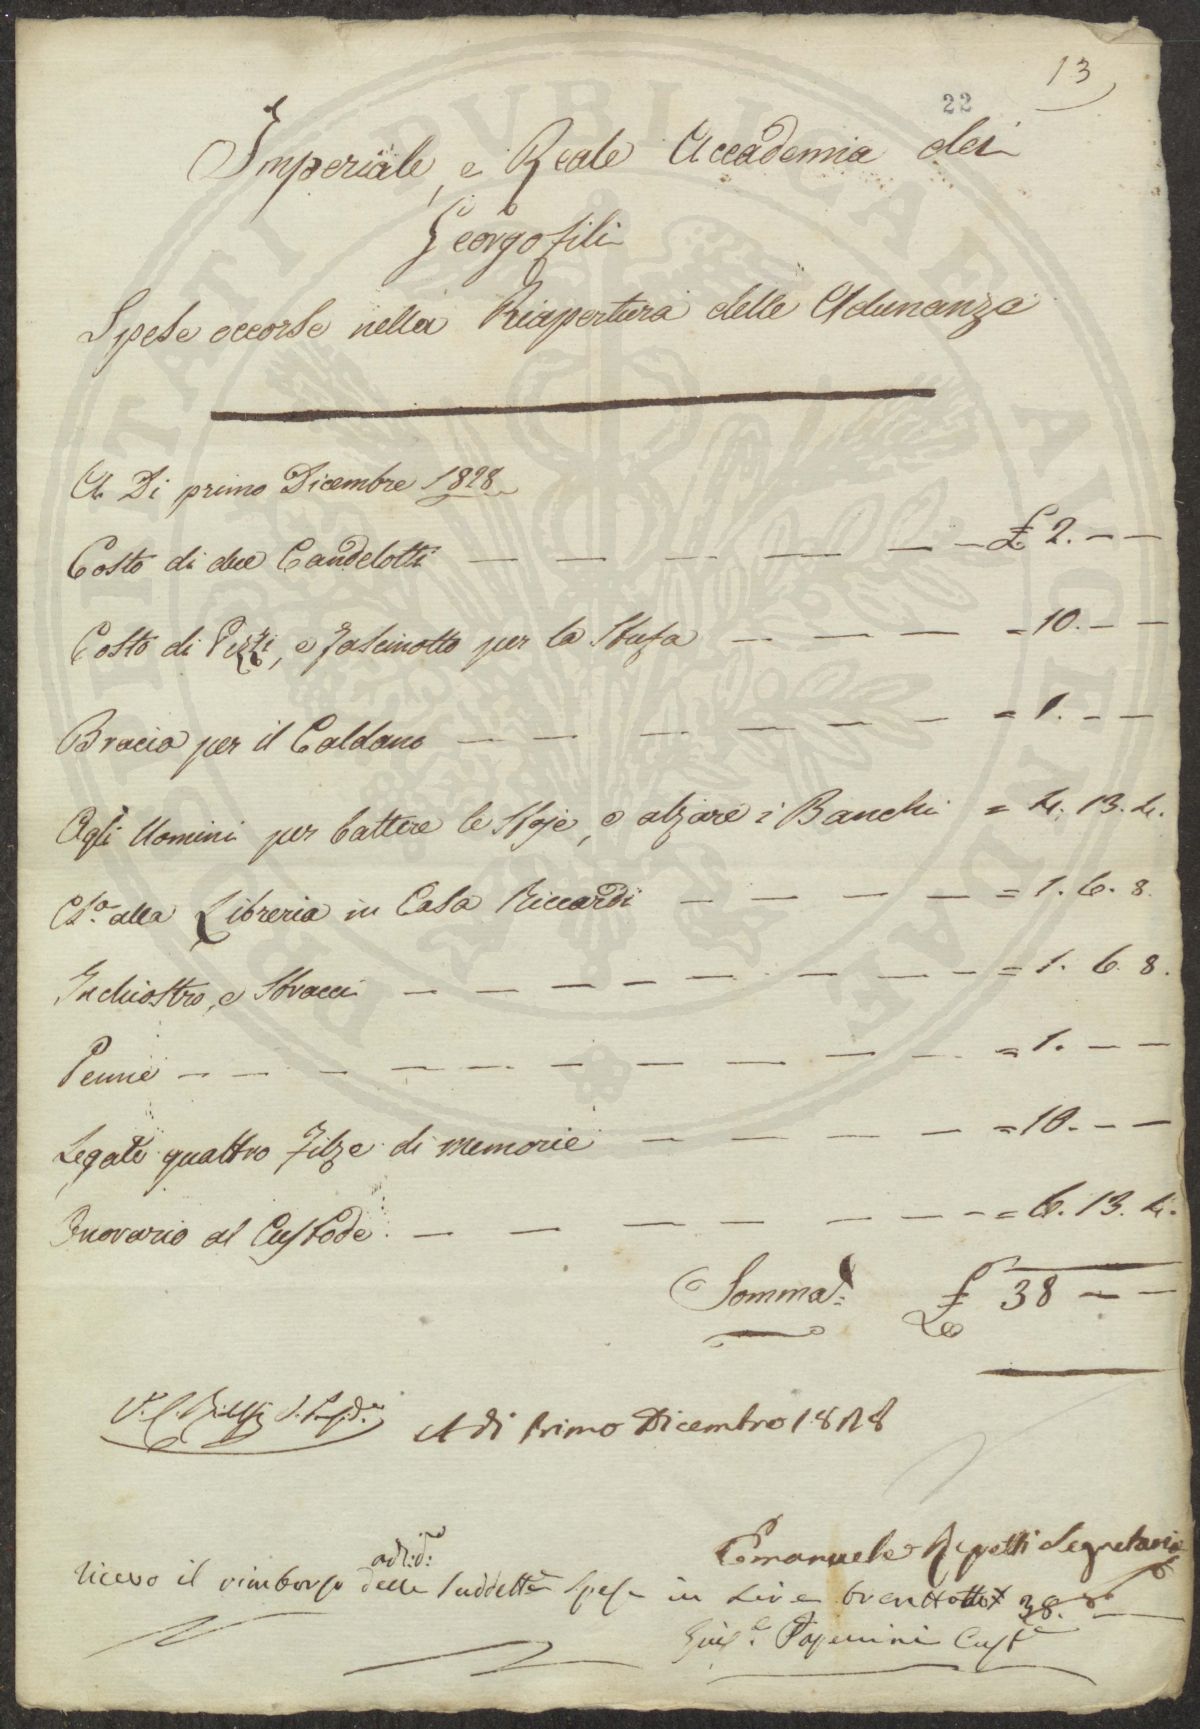 13
22
Imperiale, e Reale Accademia dei
Georgofili
Spese occorse nella Riapertura delle Adunanze
A Dì primo Dicembre 1828
Costo di due Candelotti — — — — — — £ 2. — —
Costo di Pezzi, e fascinotto per la Stufa — — — — = 10. — —
Bracia per il Caldano — — — — — — = 1. — —
Agli Uomini per battere le Stoje, e alzare i Banchi = 4. 13. 4.
Ed.a alla Libreria in Casa Riccardi — — — — = 1. 6. 8.
Inchiostro, e Stracci — — — — — — — — = 1. 6. 8.
Penne — — — — — — — — — — = 1. — —
Legate quattro Filze di memorie — — — — — = 10. — —
Onorario al Custode — — — — — — — = 6. 13. 4.
Somma £ 38 — —
A dì Primo Dicembre 1828
Emanuele Repetti Segretario
ricevo il rimborso delle suddette spese in Lire trentotto 38. —
PROSPERITATI PVBLICAE AVGENDAE